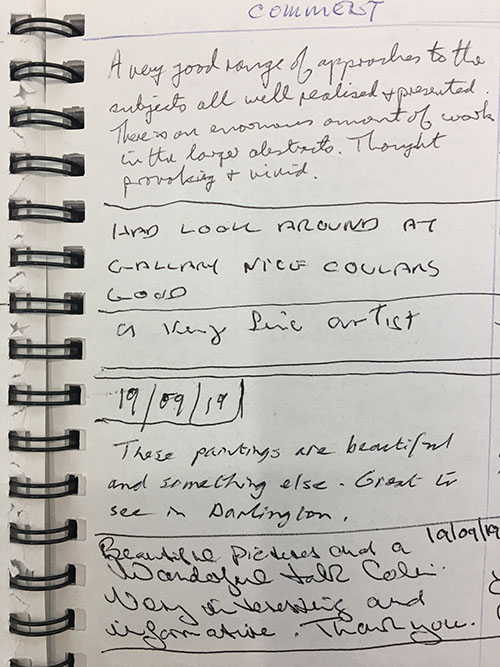 COMMENT
A very good range of approaches to the
subjects all well realised + presented.
There is an enormous amount of work
in the larger abstracts. Thought
provoking + vivid.
HAD LOOK AROUND AT
GALLARY NICE COULARS
GOOD
a very fine artist
19/09/19
These paintings are beautiful
and something else. Great to
see in Darlington.
19/09/19
Beautiful pictures and a
Wonderful talk Colin.
Very interesting and
informative. Thank you.